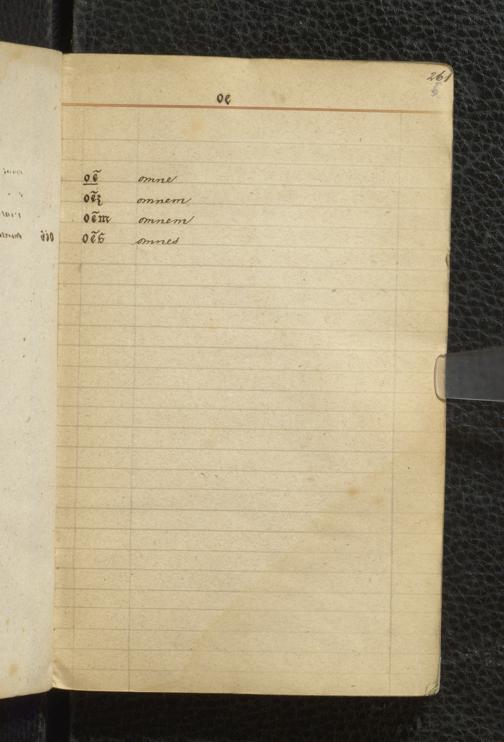 261
oe
oẽ omne
oẽꝫ omnem
oẽm omnem
oẽs omnes